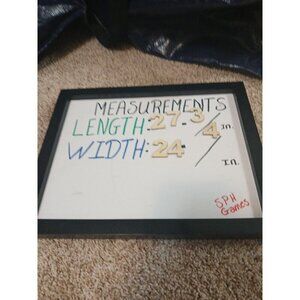 MEASUREMENTS
LENGTH: 27-3/4 IN.
WIDTH: 24- IN.
SPH
Games